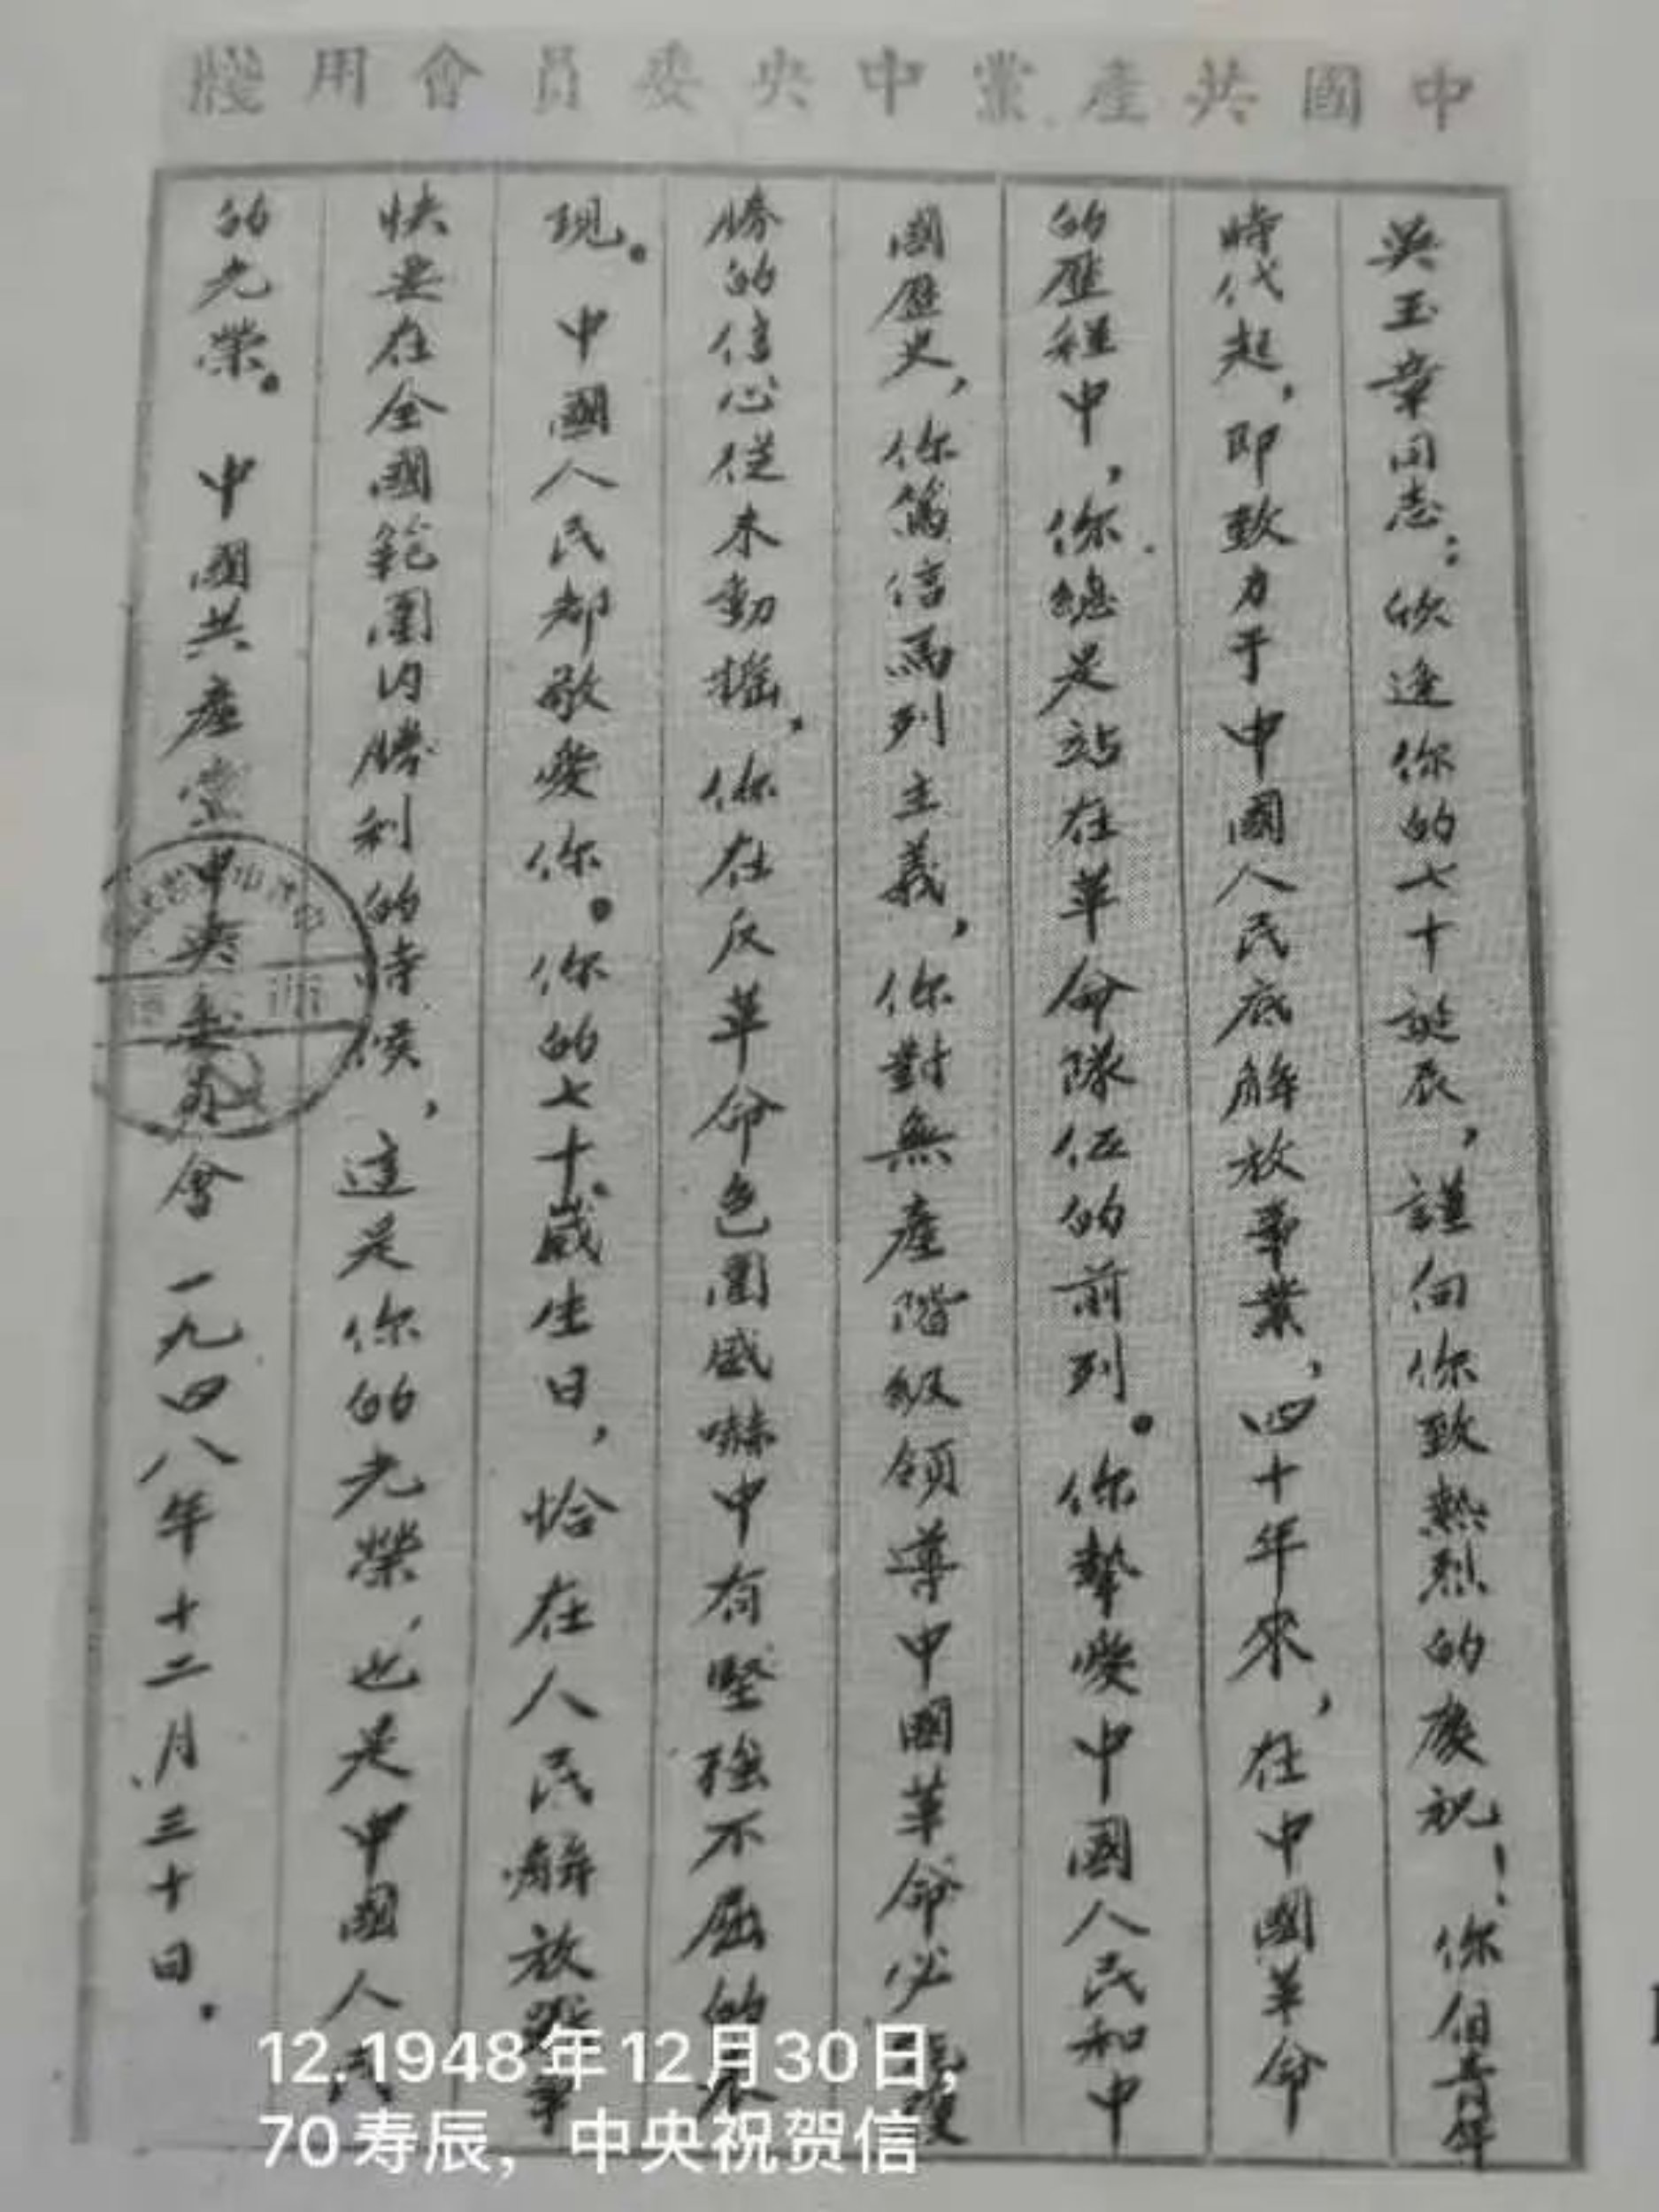 中國共產黨中央委員會用牋
吳玉章同志：欣逢你的七十誕辰，謹向你致熱烈的慶祝！你但青年
時代起，即致力于中國人民底解放事業，四十年來，在中國革命
的歷程中，你總是站在革命隊伍的前列。你摯愛中國人民和中
國歷史，你篤信馬列主義，你對無產階級領導中國革命必
勝的信心從未動搖，你在反革命白色圍威嚇中有堅強不屈的
現。中國人民都敬愛你。你的七十歲生日，恰在人民解放戰爭
快要在全國範圍内勝利的時候，這是你的光榮，也是中國人民
的光榮。中國共產黨中央委員會一九四八年十二月三十日。
12.1948年12月30日，
70寿辰，中央祝贺信